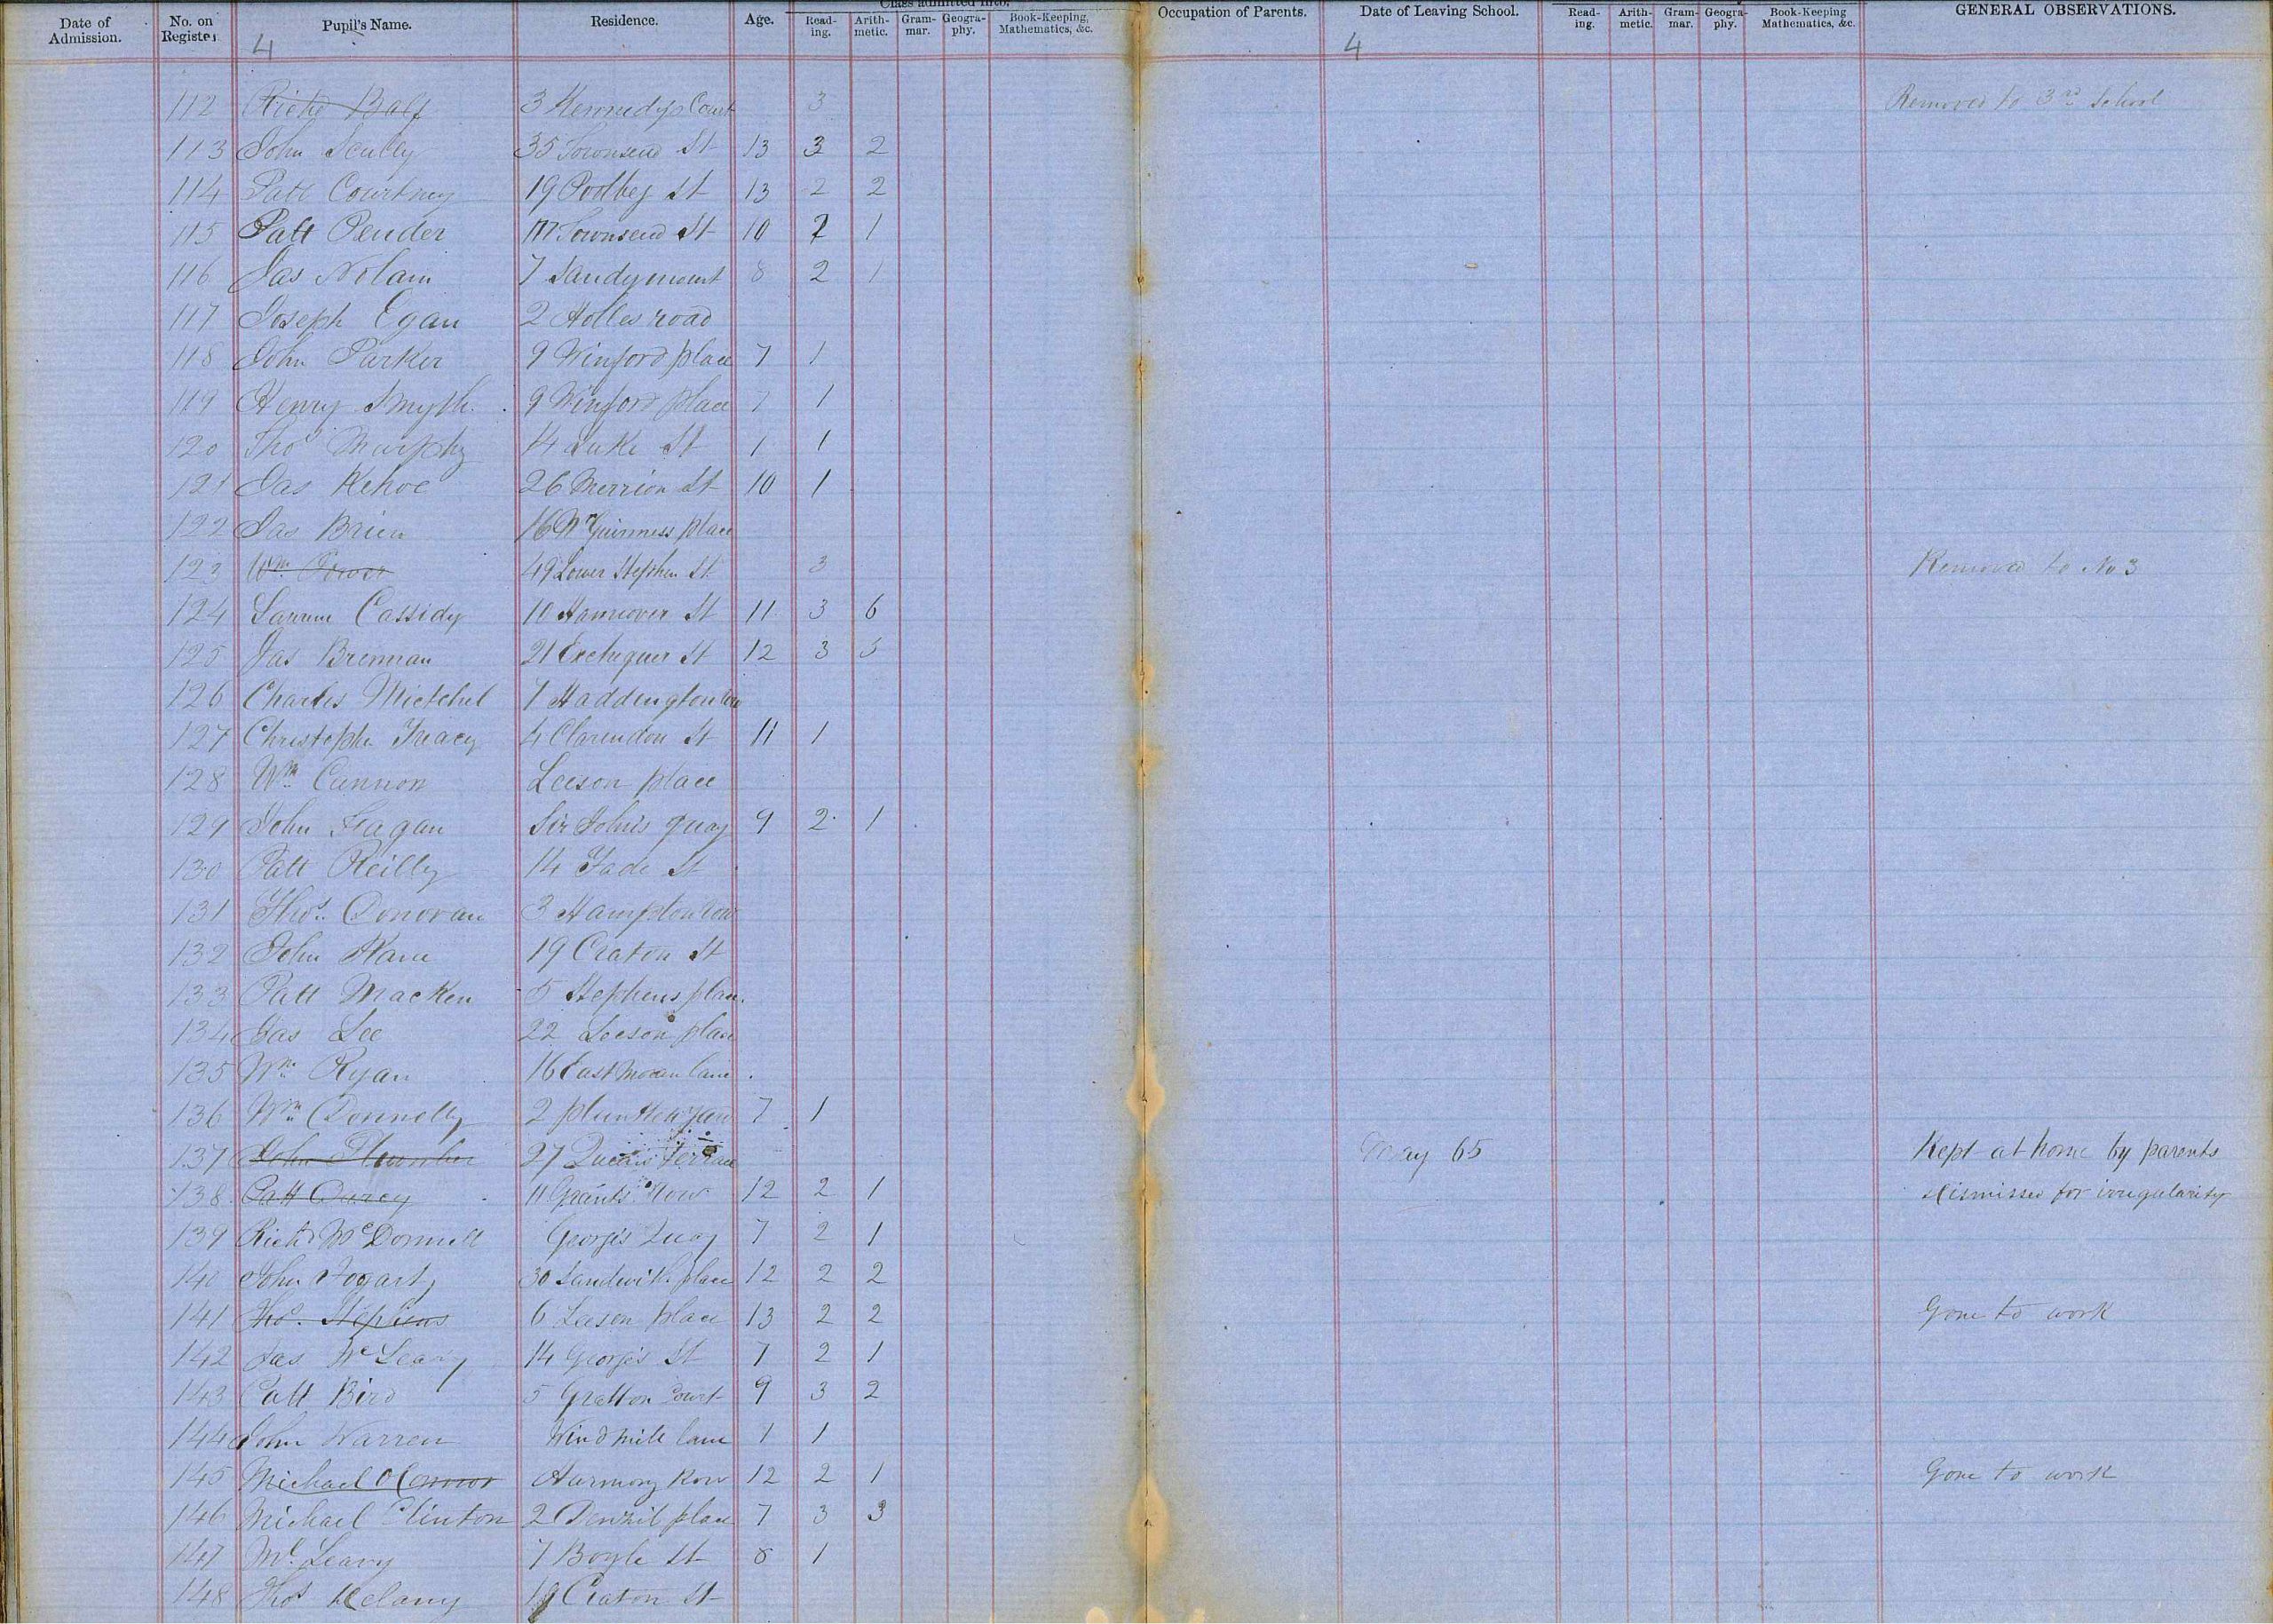 Class admitted into.
Date of Admission. No. on Register Pupil's Name. Residence. Age. Read-ing. Arith-metic. Gram-mar. Geogra-phy. Book-Keeping, Mathematics, &c. Occupation of Parents. Date of Leaving School. Read-ing. Arith-metic. Gram-mar. Geogra-phy. Book-Keeping Mathematics, &c. GENERAL OBSERVATIONS.
4 4
112 Richd Balf 3 Kennedys Court 3 Removed to 3rd School
113 John Scully 35 Townsend St 13 3 2
114 Patt Courtney 19 Poolbeg St 13 2 2
115 Patt Pender 177 Townsend St 10 2 1
116 Jas Nolan 7 Sandymount 8 2 1
117 Joseph Egan 2 Holles road
118 John Parker 9 Winford place 7 1
119 Henry Smyth 9 Winford place 7 1
120 Thos Murphy 14 Luke St 7 1
121 Jas Kehoe 26 Merrion St 10 1
122 Jas Brien 16 McGuinness place
123 Wm Power 49 Lower Stephen St 3 Removed to No 3
124 Cassidy 10 Hannover St 11 3 6
125 Jas Brennan 21 Exchequer St 12 3 5
126 Charles Mietchel 7 Haddington row
127 Christophr Treacy 4 Clarendon St 11 1
128 Wm Cannon Leeson place
129 John Fagan Sir John's quay 9 2 1
130 Patt Reilly 14 Fade St
131 Thos Donovan 3 Hampton row
132 John Kane 19 Craton St
133 Patt Macken 5 Stephens place
134 Jas Lee 22 Leeson place
135 Wm Ryan 16 East lane
136 Wm Donnelly 2 7 1
137 John Plumber 27 Queen's Terrace May 65 Kept at home by parents
138 Patt Darcy 11 Grants Row 12 2 1 Dismissed for irregularity
139 Richd McDonnell George's Quay 7 2 1
140 John Fogarty 30 Sandwith place 12 2 2
141 Thos. Stephens 6 Leeson place 13 2 2 Gone to work
142 Jas McLeavy 14 George's St 7 2 1
143 Patt Bird 5 Gratton Court 9 3 2
144 John Warren Windmill lane 7 1
145 Michael O'Connor Harmony Row 12 2 1 Gone to work
146 Michael Clinton 2 Denzil place 7 3 3
147 Ml Leavy 7 Boyle St 8 1
148 Thos Delany 19 Craton St